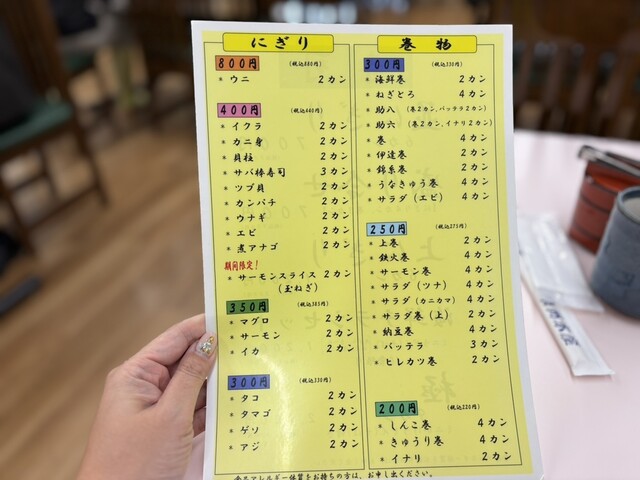 にぎり
800円 (税込880円)
* ウニ 2カン
400円 (税込440円)
* イクラ 2カン
* カニ身 2カン
* 貝柱 2カン
* サバ棒寿司 3カン
* ツブ貝 2カン
* カンパチ 2カン
* ウナギ 2カン
* エビ 2カン
* 煮アナゴ 2カン
期間限定!
* サーモンスライス 2カン
(玉ねぎ)
350円 (税込385円)
* マグロ 2カン
* サーモン 2カン
* イカ 2カン
300円 (税込330円)
* タコ 2カン
* タマゴ 2カン
* ゲソ 2カン
* アジ 2カン
巻物
300円 (税込330円)
* 海鮮巻 2カン
* ねぎとろ 4カン
* 助八 (巻2カン、バッテラ2カン)
* 助六 (巻2カン、イナリ2カン)
* 巻 4カン
* 伊達巻 2カン
* 錦糸巻 2カン
* うなきゅう巻 4カン
* サラダ(エビ) 4カン
250円 (税込275円)
* 上巻 2カン
* 鉄火巻 4カン
* サーモン巻 4カン
* サラダ(ツナ) 4カン
* サラダ(カニカマ) 4カン
* サラダ巻(上) 2カン
* 納豆巻 4カン
* バッテラ 3カン
* ヒレカツ巻 2カン
200円 (税込220円)
* しんこ巻 4カン
* きゅうり巻 4カン
* イナリ 2カン
アレルギー体質をお持ちの方は、お申し出ください。